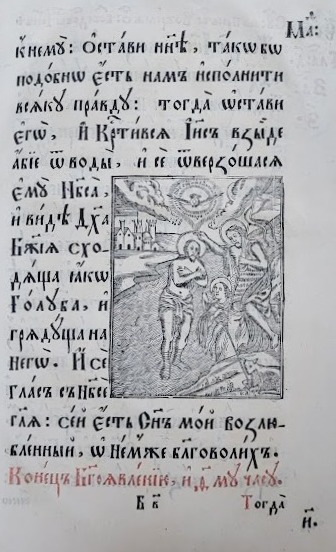 Маѳ:
к немꙋ̀: Ѡстави нн҃ѣ, такѡ бѡ
подобнѡ є҆сть намъ и҆сполнити
всякꙋ правдꙋ: тогда ѡ҆стави
є҆гѡ̀, И҆ Крⷭ҇тивсѧ І҆и҃съ взыде
а҆бїе ѿ воды, и҆ се ѿверзошасѧ
є҆мꙋ̀ Нб҃са̀,
и҆ видѣ Дх҃а
Бж҃їѧ схо-
дѧща ꙗ҆кѡ
Голꙋба, и҆
грѧдꙋща на
негѡ̀. И҆ се
гласъ съ Нб҃се
гл҃ѧ: сей є҆сть Сн҃ъ мой возлю-
бленный, ѡ҆ Немже бл҃говолихъ.
Конецъ Бг҃оѧвленїе, и҆ д҃ мꙋ часꙋ.
Б в҃
Тогда
и҃.